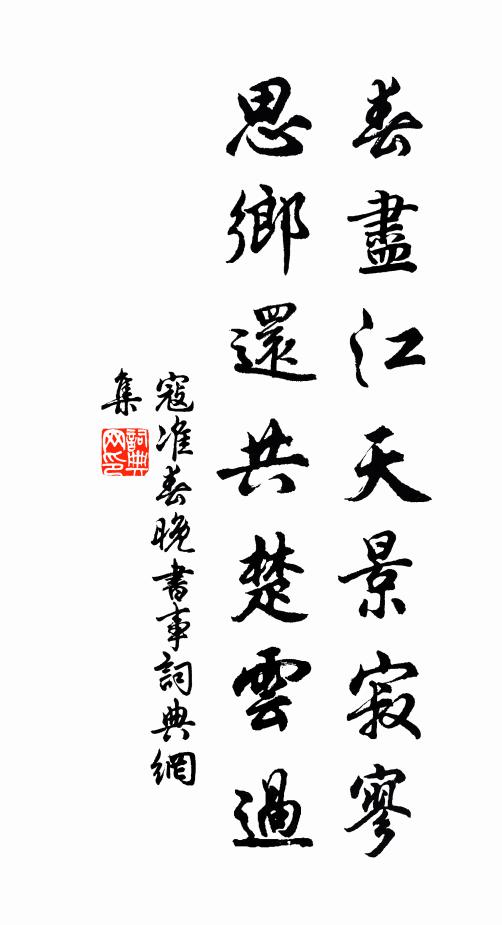 春盡江天景寂寥
思鄉還共楚雲過
寇准春晚書事詞典網
集
詞典网印